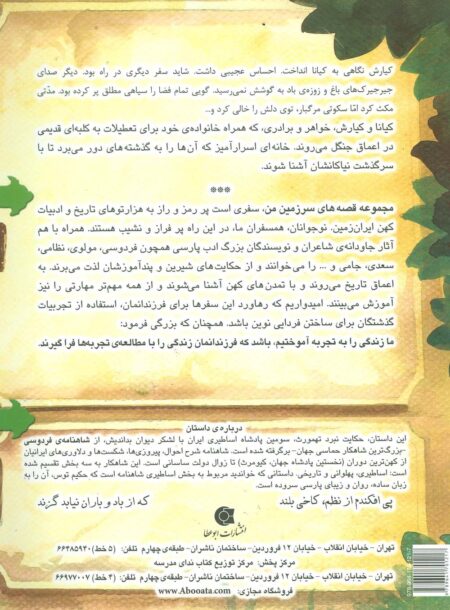 کیارش نگاهی به کیانا انداخت. احساس عجیبی داشت. شاید سفر دیگری در راه بود. دیگر صدای
جیرجیرک‌های باغ و زوزه‌ی باد به گوشش نمی‌رسید. گویی تمام فضا را سیاهی مطلق پر کرده بود. مدّتی
مکث کرد امّا سکوتی مرگبار، توی دلش را خالی کرد و...
کیانا و کیارش، خواهر و برادری، که همراه خانواده‌ی خود برای تعطیلات به کلبه‌ای قدیمی
در اعماق جنگل می‌روند. خانه‌ای اسرارآمیز که آن‌ها را به گذشته‌های دور می‌برد تا با
سرگذشت نیاکانشان آشنا شوند.
***
مجموعه قصه‌های سرزمین من، سفری است پر رمز و راز به هزارتوهای تاریخ و ادبیات
کهن ایران‌زمین. نوجوانان، همسفران ما، در این راه پر فراز و نشیب هستند. همراه با هم
آثار جاودانه‌ی شاعران و نویسندگان بزرگ ادب پارسی همچون فردوسی، مولوی، نظامی،
سعدی، جامی و ... را می‌خوانند و از حکایت‌های شیرین و پندآموزشان لذت می‌برند. به
اعماق تاریخ می‌روند و با تمدن‌های کهن آشنا می‌شوند و از همه مهم‌تر مهارتی را نیز
آموزش می‌بینند. امیدواریم که رهاورد این سفرها برای فرزندانمان، استفاده از تجربیات
گذشتگان برای ساختن فردایی نوین باشد. همچنان که بزرگی فرمود:
ما زندگی را به تجربه آموختیم، باشد که فرزندانمان زندگی را با مطالعه‌ی تجربه‌ها فرا گیرند.
درباره‌ی داستان
این داستان، حکایت نبرد تهمورث، سومین پادشاه اساطیری ایران با لشکر دیوان بداندیش، از شاهنامه‌ی فردوسی
-بزرگ‌ترین شاهکار حماسی جهان- برگرفته شده است. شاهنامه شرح احوال، پیروزی‌ها، شکست‌ها و دلاوری‌های ایرانیان
از کهن‌ترین دوران (نخستین پادشاه جهان، کیومرث) تا زوال دولت ساسانی است. این شاهکار به سه بخش تقسیم شده
است: اساطیری، پهلوانی و تاریخی. داستانی که خواندید مربوط به بخش اساطیری شاهنامه است که حکیم توس، آن را به
زبان ساده، روان و زیبای پارسی سروده است.
پی افکندم از نظم، کاخی بلند که از باد و باران نیابد گزند
انتشارات ابوعطا
تهران - خیابان انقلاب - خیابان ۱۲ فروردین- ساختمان ناشران- طبقه‌ی چهارم تلفن: (۵ خط)۶۶۴۸۵۹۴۰
مرکز پخش: مرکز توزیع کتاب ندای مدرسه
تهران - خیابان انقلاب - خیابان ۱۲ فروردین- ساختمان ناشران- طبقه‌ی چهارم تلفن: (۴ خط)۶۶۹۷۷۰۰۷
فروشگاه مجازی: www.Abooata.com